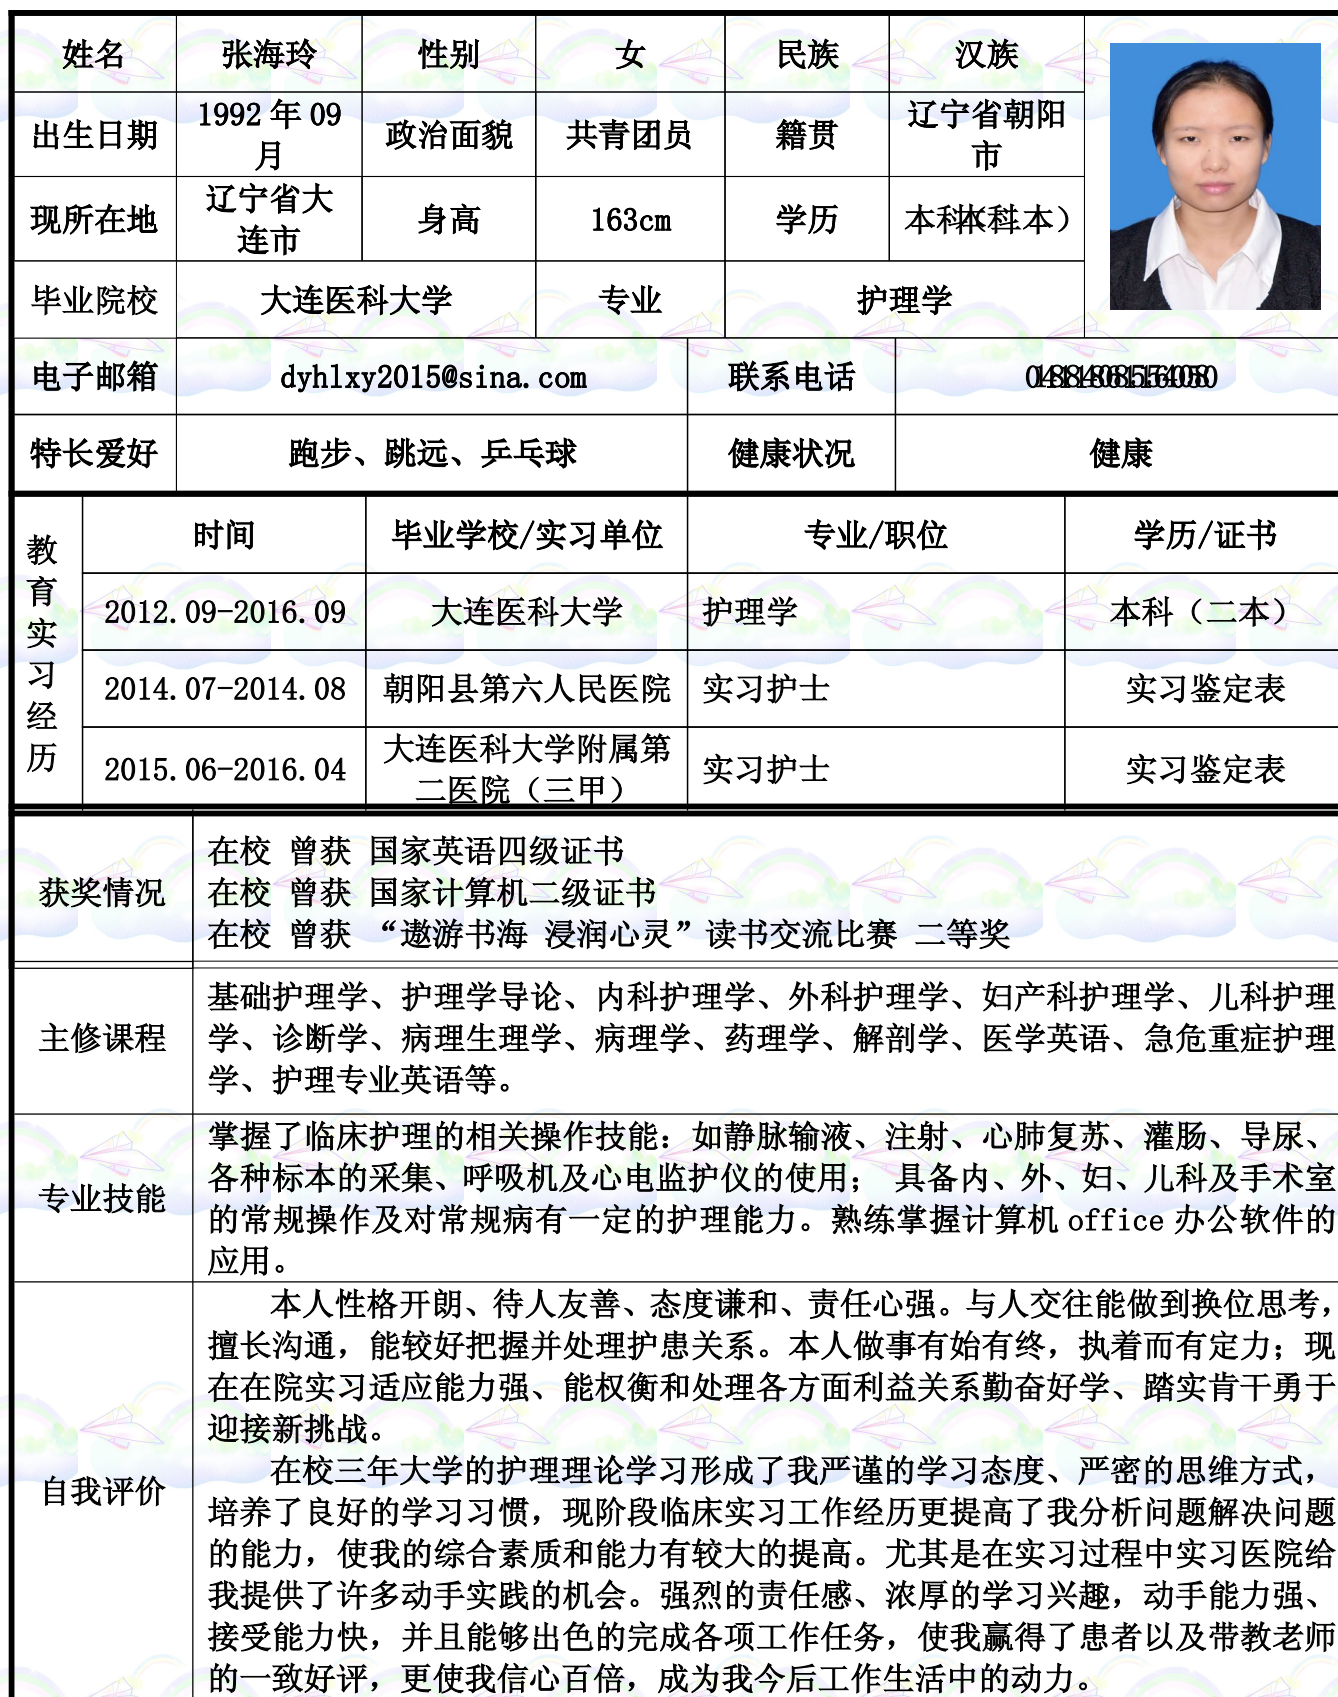 姓名 张海玲 性别 女 民族 汉族
出生日期 1992年09月 政治面貌 共青团员 籍贯 辽宁省朝阳市
现所在地 辽宁省大连市 身高 163cm 学历
毕业院校 大连医科大学 专业 护理学
电子邮箱 dyhlxy2015@sina.com 联系电话
特长爱好 跑步、跳远、乒乓球 健康状况 健康
教育实习经历
时间 毕业学校/实习单位 专业/职位 学历/证书
2012.09-2016.09 大连医科大学 护理学 本科（二本）
2014.07-2014.08 朝阳县第六人民医院 实习护士 实习鉴定表
2015.06-2016.04 大连医科大学附属第二医院（三甲） 实习护士 实习鉴定表
获奖情况
在校 曾获 国家英语四级证书
在校 曾获 国家计算机二级证书
在校 曾获 “遨游书海 浸润心灵”读书交流比赛 二等奖
主修课程
基础护理学、护理学导论、内科护理学、外科护理学、妇产科护理学、儿科护理
学、诊断学、病理生理学、病理学、药理学、解剖学、医学英语、急危重症护理
学、护理专业英语等。
专业技能
掌握了临床护理的相关操作技能：如静脉输液、注射、心肺复苏、灌肠、导尿、
各种标本的采集、呼吸机及心电监护仪的使用； 具备内、外、妇、儿科及手术室
的常规操作及对常规病有一定的护理能力。熟练掌握计算机office办公软件的
应用。
自我评价
本人性格开朗、待人友善、态度谦和、责任心强。与人交往能做到换位思考，
擅长沟通，能较好把握并处理护患关系。本人做事有始有终，执着而有定力；现
在在院实习适应能力强、能权衡和处理各方面利益关系勤奋好学、踏实肯干勇于
迎接新挑战。
在校三年大学的护理理论学习形成了我严谨的学习态度、严密的思维方式，
培养了良好的学习习惯，现阶段临床实习工作经历更提高了我分析问题解决问题
的能力，使我的综合素质和能力有较大的提高。尤其是在实习过程中实习医院给
我提供了许多动手实践的机会。强烈的责任感、浓厚的学习兴趣，动手能力强、
接受能力快，并且能够出色的完成各项工作任务，使我赢得了患者以及带教老师
的一致好评，更使我信心百倍，成为我今后工作生活中的动力。